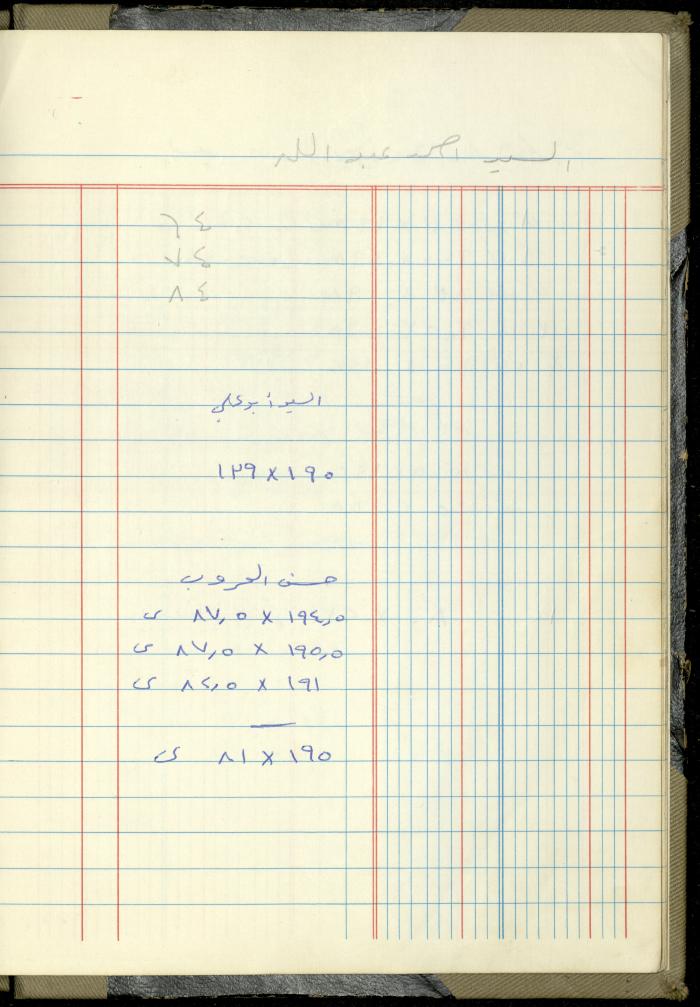 السيد احمد عبد الله
٦٤
٧٤
٨٤
السيد أبو علي
١٩٠ X ١٢٩
حسن الحروب
١٩٤,٥ X ٨٧,٥ ى
١٩٥,٥ X ٨٧,٥ ى
١٩١ X ٨٤,٥ ى
١٩٥ X ٨١ ى